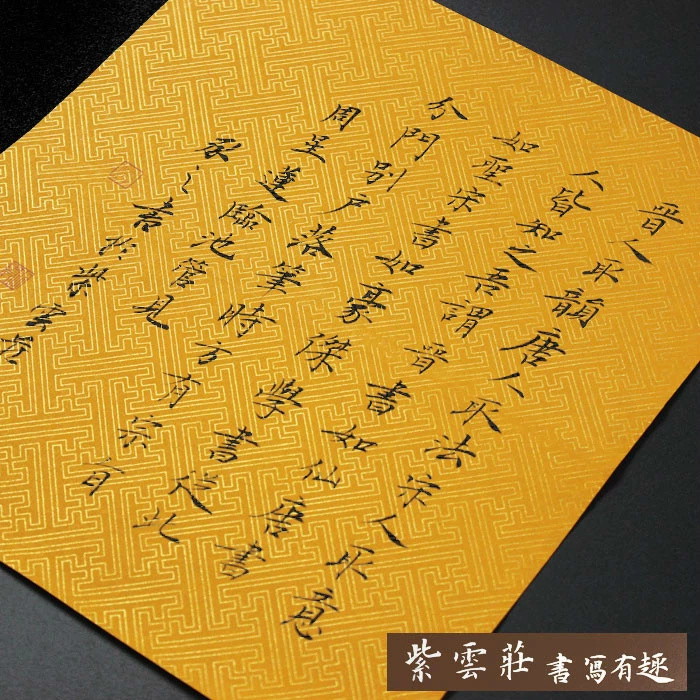 晉人取韻唐人取法宋人取意
人皆知之吾謂晉書如仙唐書
如聖宋書如豪傑學書從此
分門別户落筆時方有宗旨
周星蓮臨池管見
承之書於紫雲莊
紫雲莊 書寫有趣